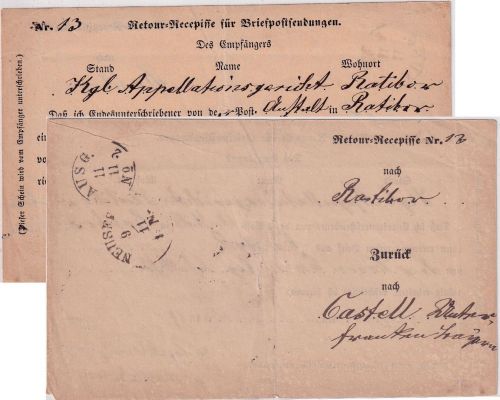 Nr. 13 Retour-Recepisse für Briefpostsendungen.
Des Empfängers
Stand Name Wohnort
Kgl. Appellationsgericht Ratibor
Daß ich Endesunterschriebener von der Post-Anstalt in Ratibor
(Dieser Schein wird vom Empfänger unterschrieben.)
Retour-Recepisse Nr. 13
nach
Ratibor.
Zurück
nach
Castell Unter
franken Bayern
AUSG.
11
11
NEUSS
9
11